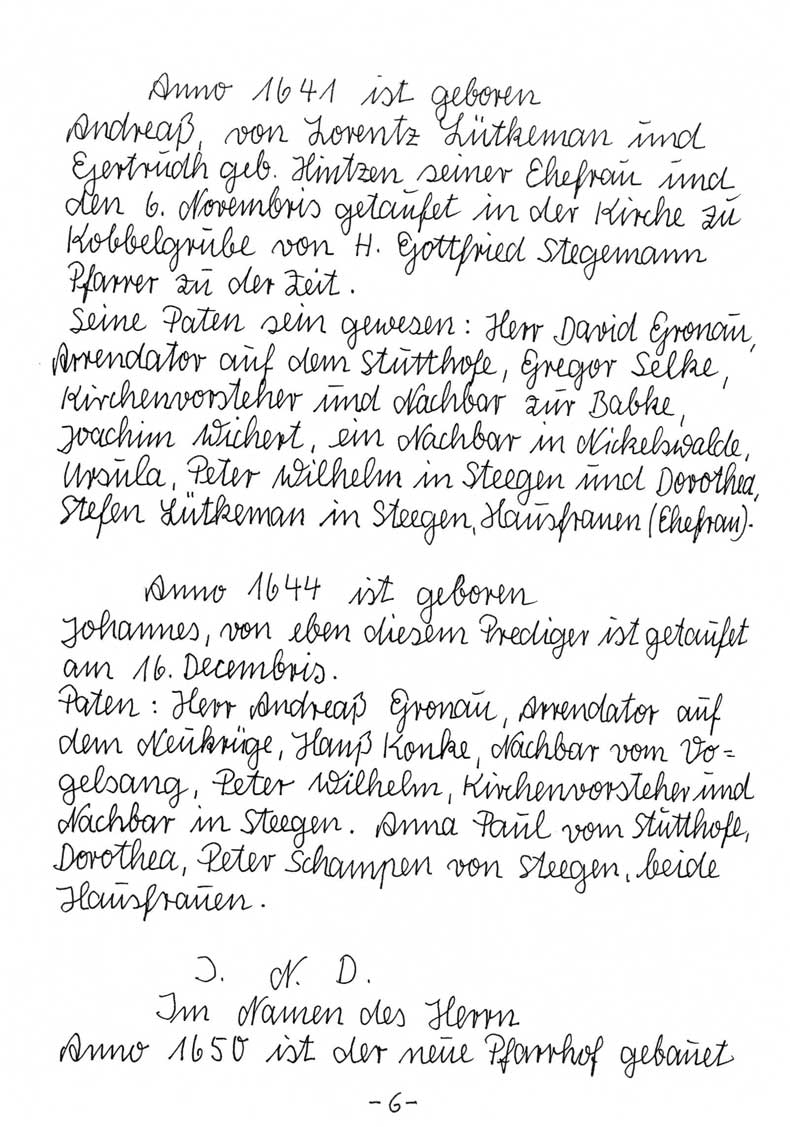 Anno 1641 ist geboren
Andreaß, von Lorentz Lütkeman und
Gertrudh geb. Hintzen seiner Ehefrau und
den 6. Novembris getaufet in der Kirche zu
Kobbelgrube von H. Gottfried Stegemann
Pfarrer zu der Zeit.
Seine Paten sein gewesen: Herr David Gronau,
Arrendator auf dem Stutthofe, Gregor Selke,
Kirchenvorsteher und Nachbar zur Babke,
Joachim Wichert, ein Nachbar in Nickelswalde,
Ursula, Peter Wilhelm in Steegen und Dorothea,
Stefen Lütkeman in Steegen, Hausfrauen (Ehefrau).
Anno 1644 ist geboren
Johannes, von eben diesem Prediger ist getaufet
am 16. Decembris.
Paten: Herr Andreaß Gronau, Arrendator auf
dem Neukrüge, Hanß Konke, Nachbar vom Vo=
gelsang, Peter Wilhelm, Kirchenvorsteher und
Nachbar in Steegen. Anna Paul vom Stutthofe,
Dorothea, Peter Schampen von Steegen, beide
Hausfrauen.
J. N. D.
Im Namen des Herrn
Anno 1650 ist der neue Pfarrhof gebauet
-6-